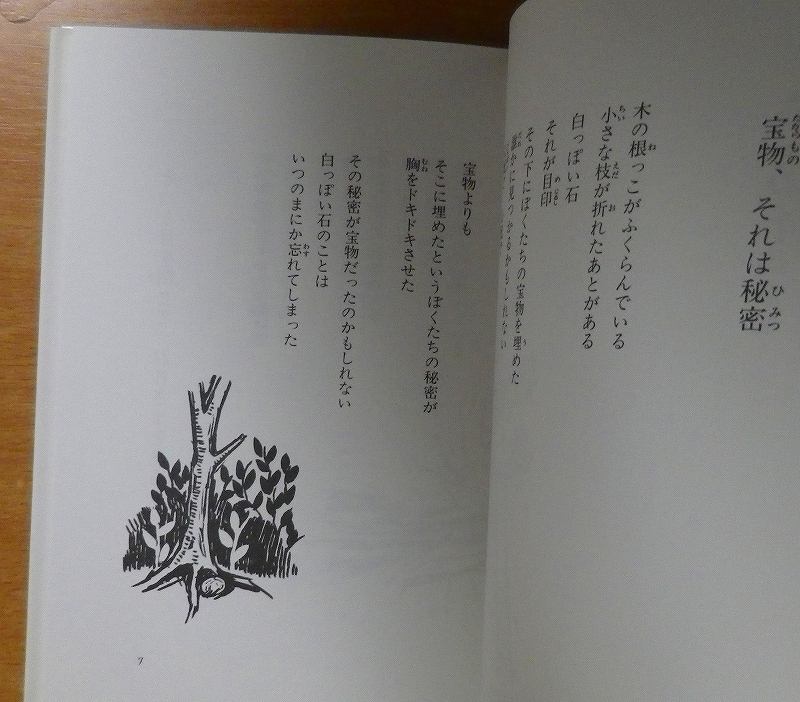 宝物、それは秘密
木の根っこがふくらんでいる
小さな枝が折れたあとがある
白っぽい石
それが目印
その下にぼくたちの宝物を埋めた
誰かに見つかるかもしれない
宝物よりも
そこに埋めたというぼくたちの秘密が
胸をドキドキさせた
その秘密が宝物だったのかもしれない
白っぽい石のことは
いつのまにか忘れてしまった
7